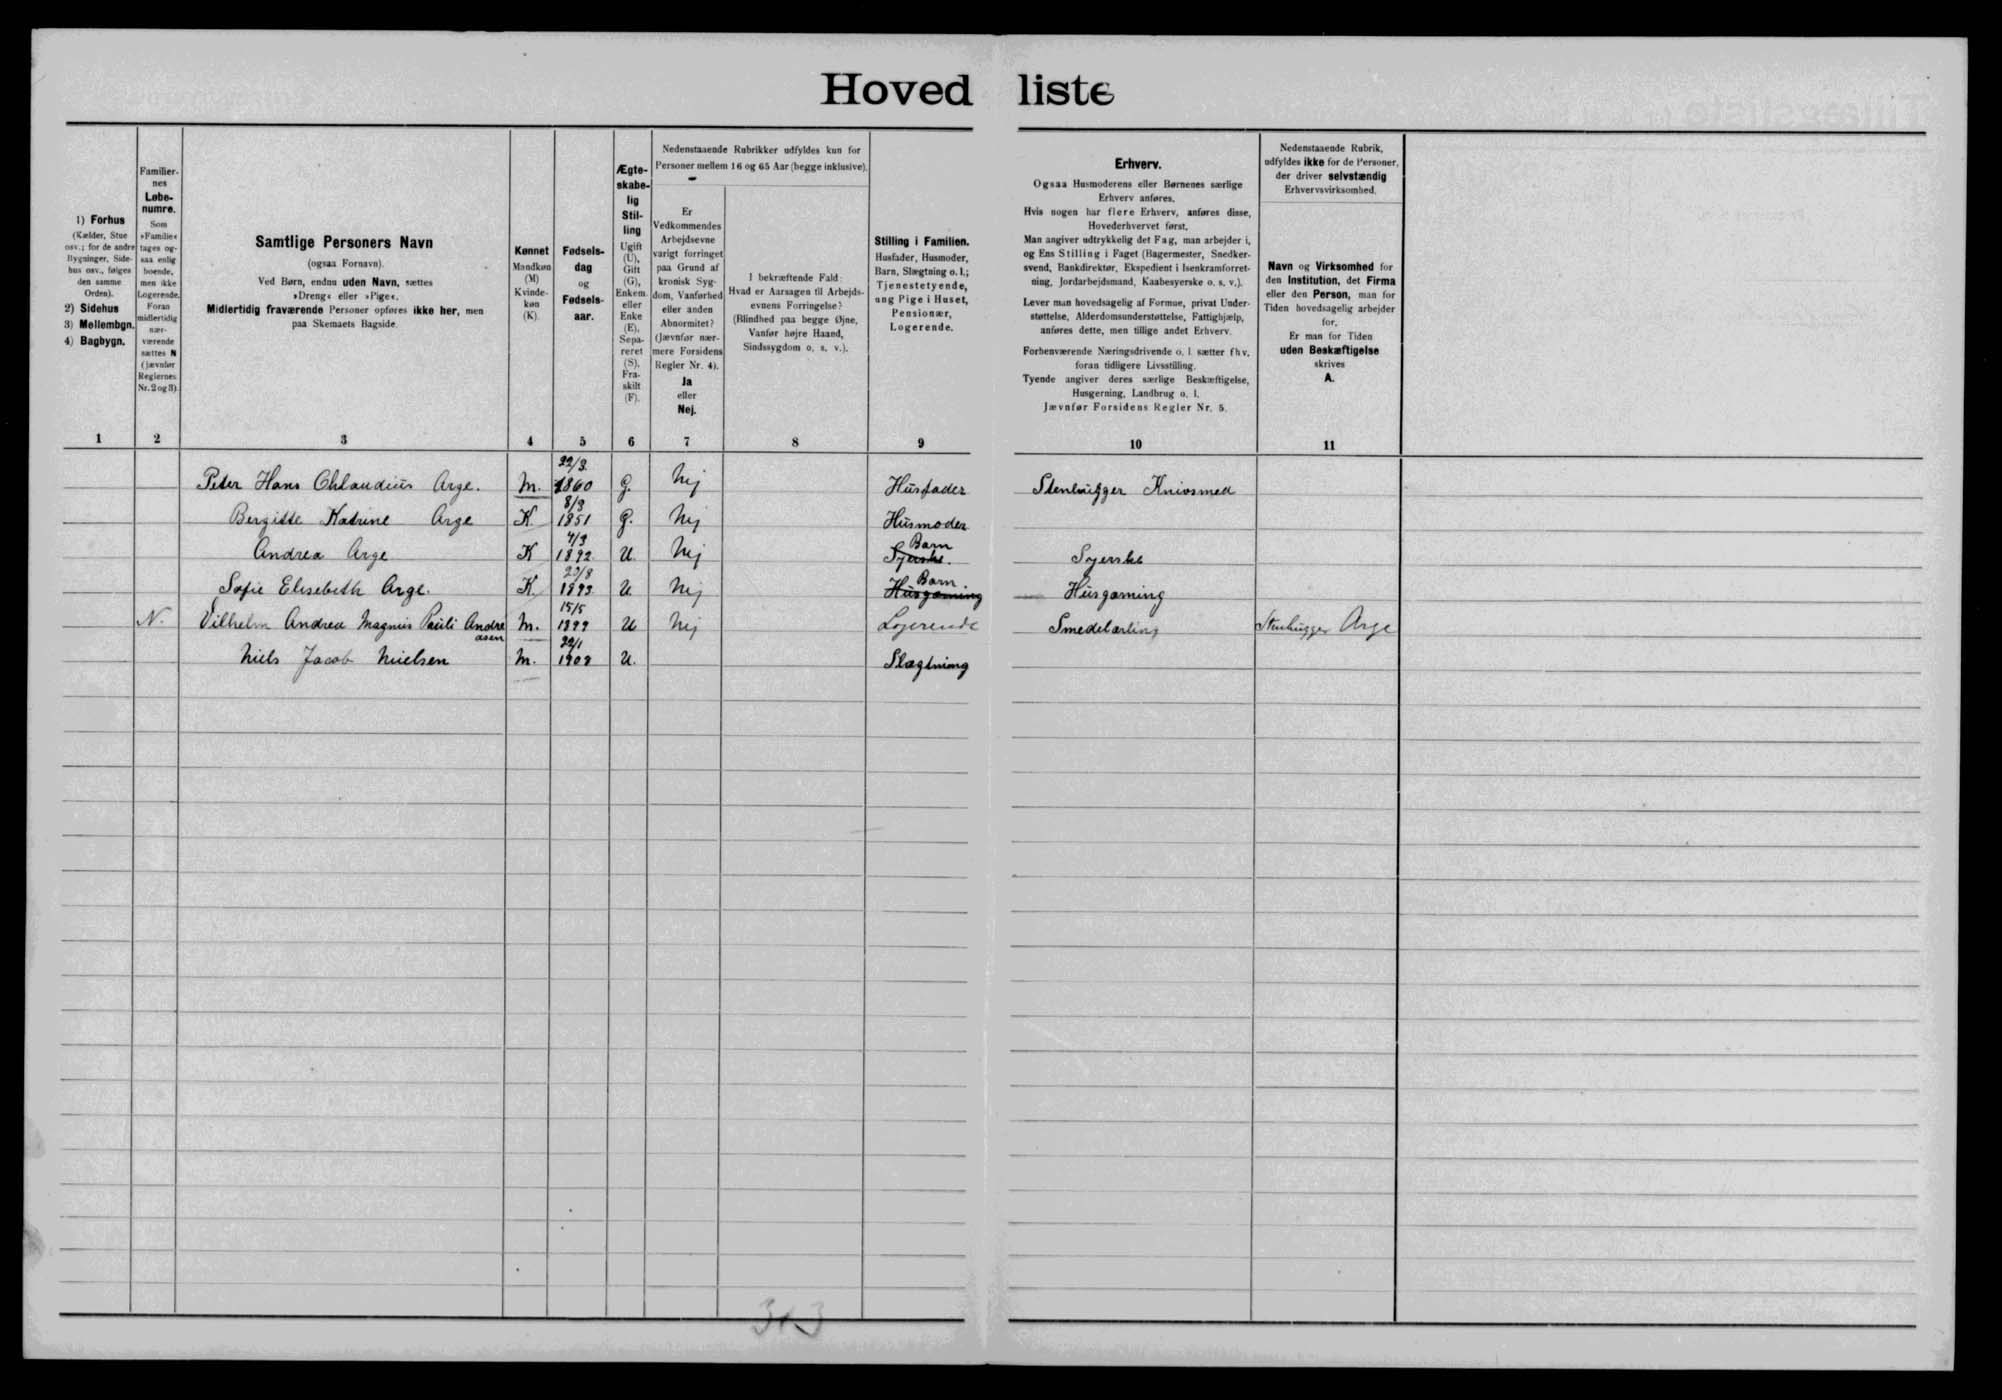 Hovedliste
1) Forhus
(Kælder, Stue
osv.; for de andre
Bygninger, Side-
hus osv., følges
den samme
Orden).
2) Sidehus
3) Mellembgn.
4) Bagbygn.
Familier-
nes
Løbe-
numre.
Som
»Familie«
tages og-
saa enlig
boende,
men ikke
Logerende.
Foran
midlertidig
nær-
værende
sættes N
(jævnfør
Reglernes
Nr. 2 og 3).
Samtlige Personers Navn
(ogsaa Fornavn).
Ved Børn, endnu uden Navn, sættes
»Dreng« eller »Pige«.
Midlertidig fraværende Personer opføres ikke her, men
paa Skemaets Bagside.
Kønnet
Mandkøn
(M)
Kvinde-
køn
(K).
Fødsels-
dag
og
Fødsels-
aar.
Ægte-
skabe-
lig
Stil-
ling
Ugift
(U),
Gift
(G),
Enkem.
eller
Enke
(E),
Sepa-
reret
(S),
Fra-
skilt
(F).
Nedenstaaende Rubrikker udfyldes kun for
Personer mellem 16 og 65 Aar (begge inklusive).
Er
Vedkommendes
Arbejdsevne
varigt forringet
paa Grund af
kronisk Syg-
dom, Vanførhed
eller anden
Abnormitet?
(Jævnfør nær-
mere Forsidens
Regler Nr. 4).
Ja
eller
Nej.
I bekræftende Fald:
Hvad er Aarsagen til Arbejds-
evnens Forringelse?
(Blindhed paa begge Øjne,
Vanfør højre Haand,
Sindssygdom o. s. v.).
Stilling i Familien.
Husfader, Husmoder,
Barn, Slægtning o. l.;
Tjenestetyende,
ung Pige i Huset,
Pensionær,
Logerende.
Erhverv.
Ogsaa Husmoderens eller Børnenes særlige
Erhverv anføres.
Hvis nogen har flere Erhverv, anføres disse,
Hovederhvervet først.
Man angiver udtrykkelig det Fag, man arbejder i,
og Ens Stilling i Faget (Bagermester, Snedker-
svend, Bankdirektør, Ekspedient i Isenkramforret-
ning, Jordarbejdsmand, Kaabesyerske o. s. v.).
Lever man hovedsagelig af Formue, privat Under-
støttelse, Alderdomsunderstøttelse, Fattighjælp,
anføres dette, men tillige andet Erhverv.
Forhenværende Næringsdrivende o. l. sætter fhv.
foran tidligere Livsstilling.
Tyende angiver deres særlige Beskæftigelse,
Husgerning, Landbrug o. l.
Jævnfør Forsidens Regler Nr. 5.
Nedenstaaende Rubrik,
udfyldes ikke for de Personer,
der driver selvstændig
Erhvervsvirksomhed.
Navn og Virksomhed for
den Institution, det Firma
eller den Person, man for
Tiden hovedsagelig arbejder
for.
Er man for Tiden
uden Beskæftigelse
skrives
A.
1 2 3 4 5 6 7 8 9 10 11
Peter Hans Chlaudius Arge. M. 22/3 1860 G. Nej Husfader Stenhugger Knivsmed
Bergitte Katrine Arge K 8/9 1851 G. Nej Husmoder
Andrea Arge K 1892 U. Nej Syerske. Barn Syerske
Sofie Elisebeth Arge. K. 1893 U Nej Husgærning Barn. Husgærning
N. Vilhelm Andrea Magnus Pauli Andreasen M. 15/5 1899 U Nej Logerende Smedelærling Stenhugger Arge
Niels Jacob Nielsen M. 22/1 U. Slægtning
313